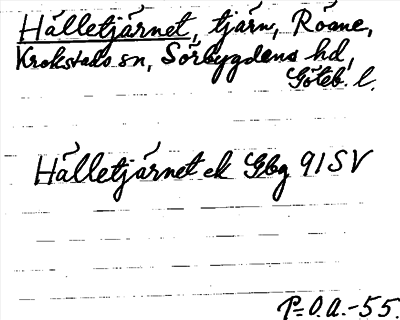 Hålletjärnet, tjärn, Röane,
Krokstads sn, Sörbygdens hd,
Göteb. l.
Hålletjärnet ek Gbg 91 SV
P=O.A.-55.